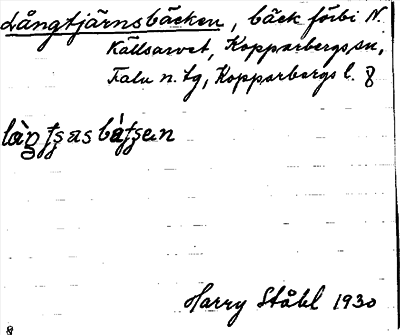 Långtjärnsbäcken, bäck förbi N.
Källsarvet, Kopparbergs sn,
Falu n. tg, Kopparbergs l. 8
Harry Ståhl 1930
8